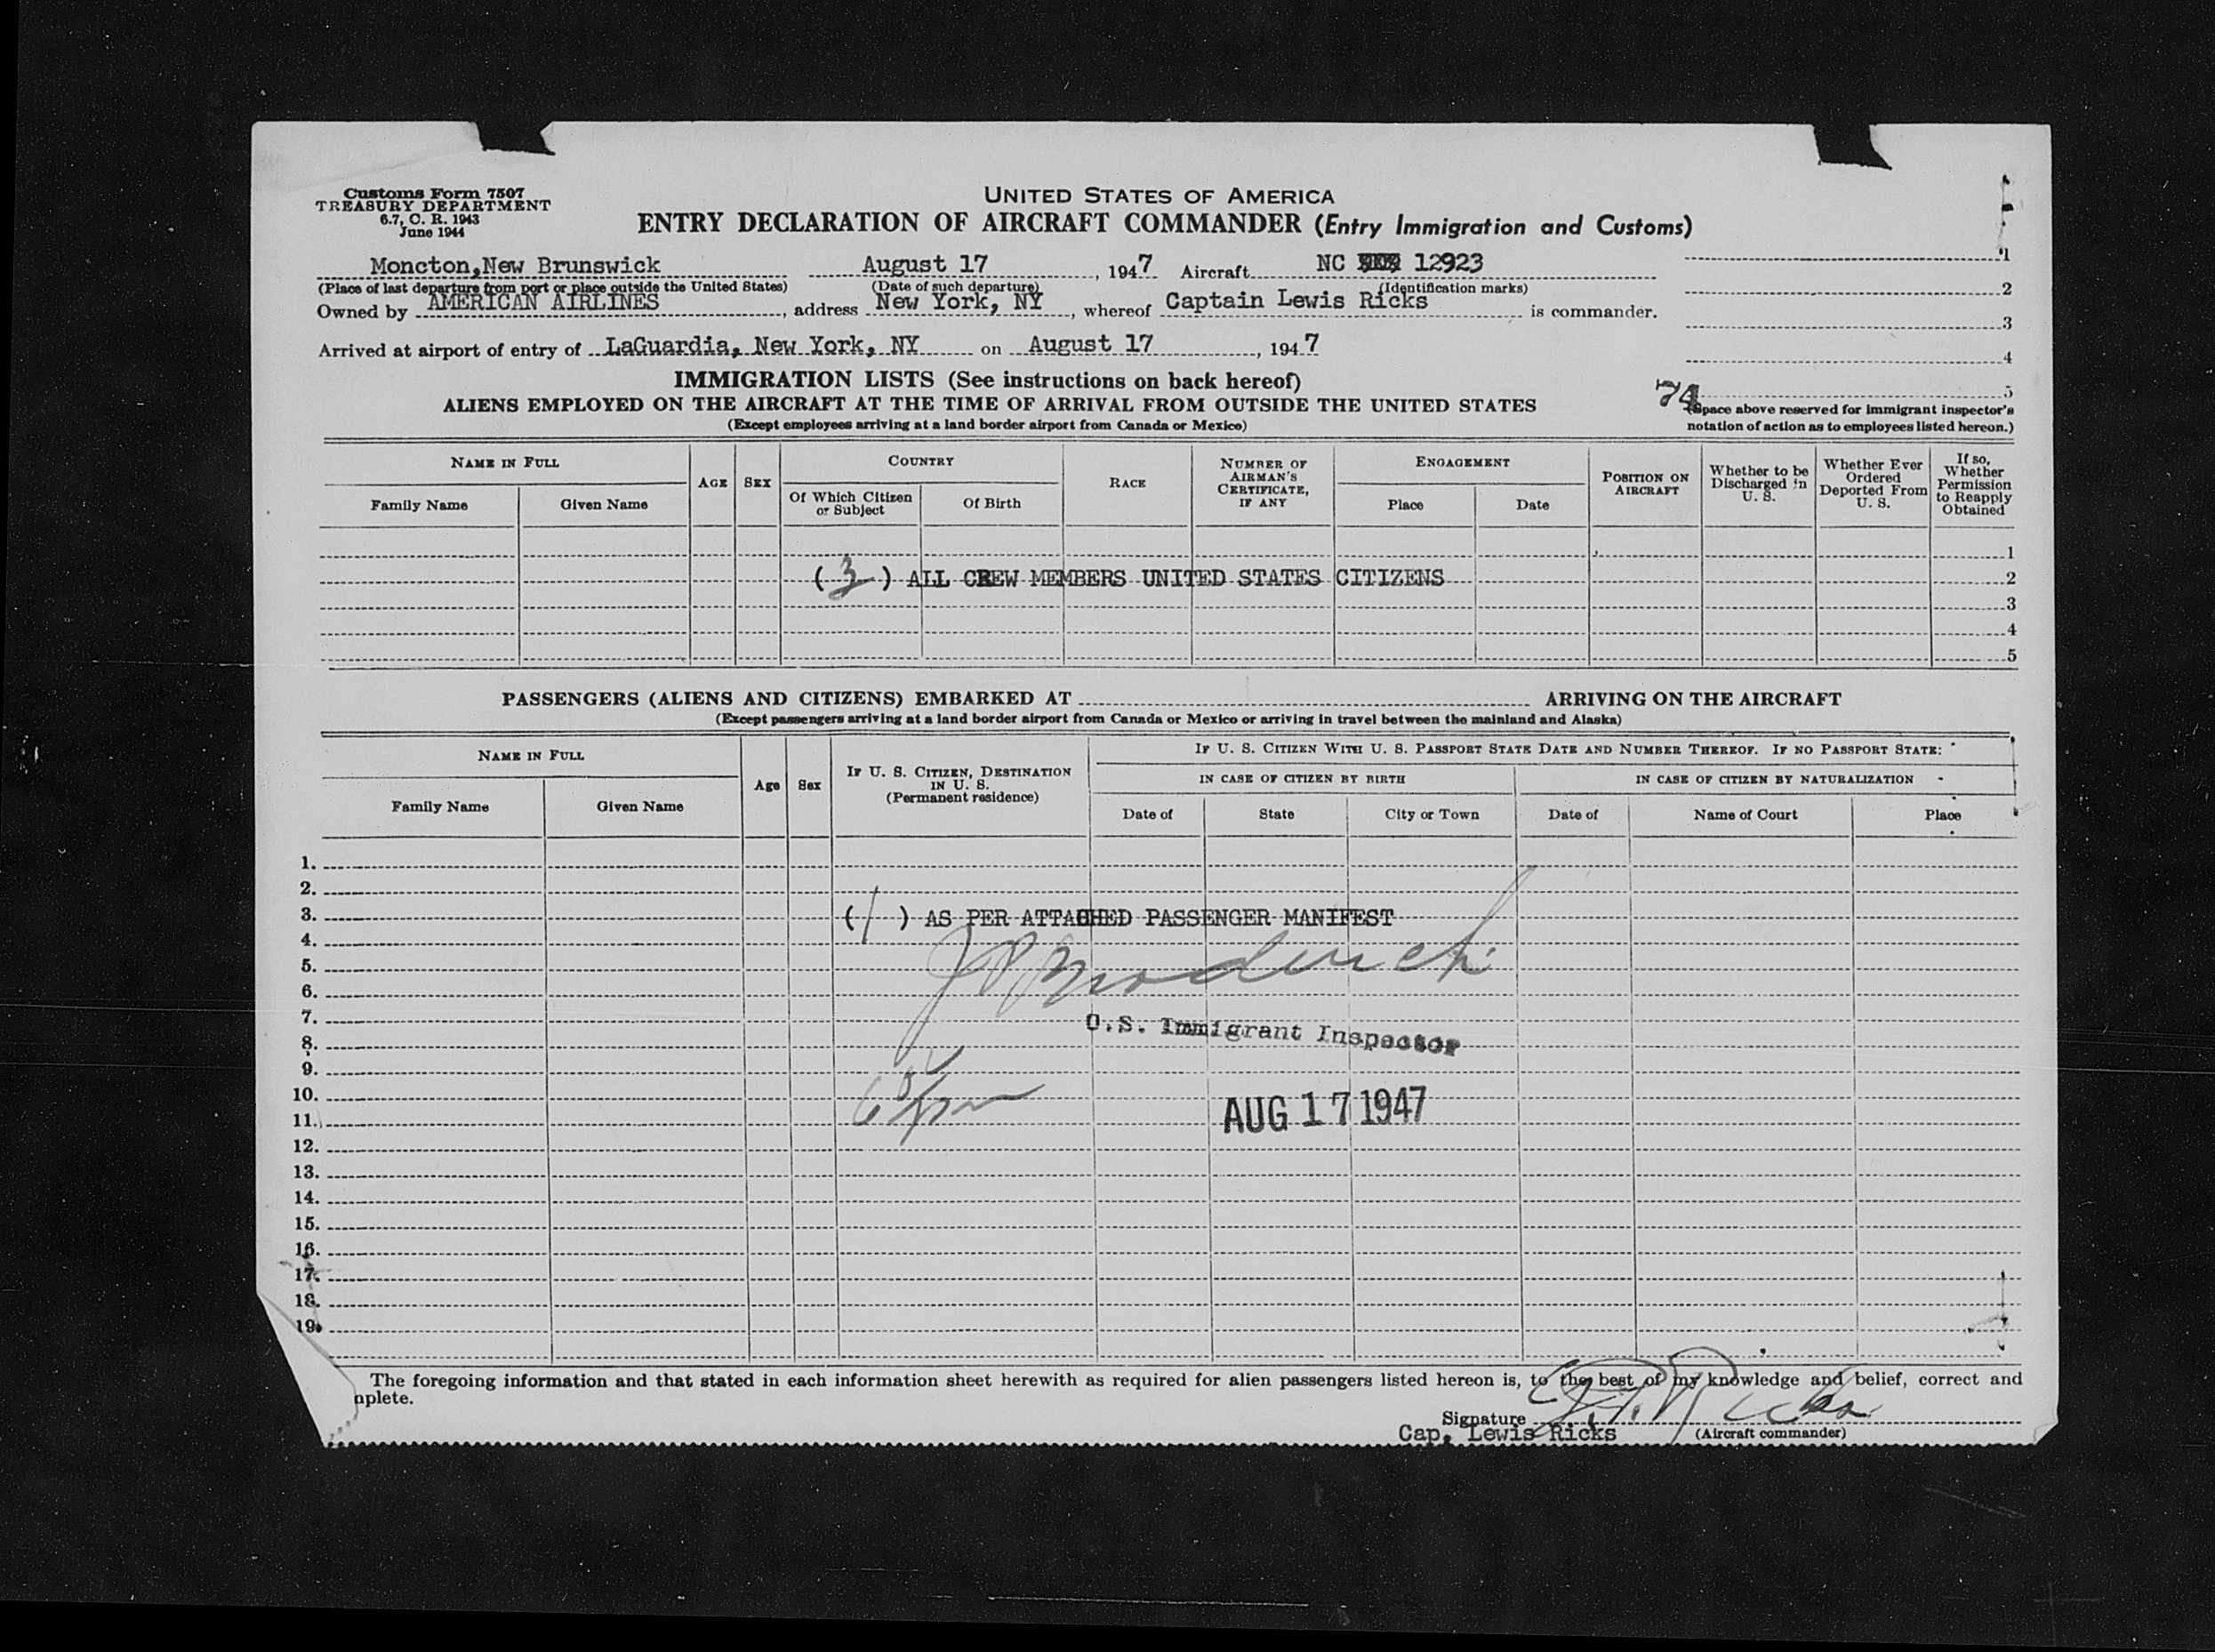 Customs Form 7507
TREASURY DEPARTMENT
6.7, C. R. 1943
June 1944
UNITED STATES OF AMERICA
ENTRY DECLARATION OF AIRCRAFT COMMANDER (Entry Immigration and Customs)
Moncton,New Brunswick August 17, 1947 Aircraft NC 12923
(Place of last departure from port or place outside the United States) (Date of such departure) (Identification marks)
Owned by AMERICAN AIRLINES, address New York, NY, whereof Captain Lewis Ricks is commander.
Arrived at airport of entry of LaGuardia, New York, NY on August 17, 1947
1
2
3
4
5
74
(Space above reserved for immigrant inspector's
notation of action as to employees listed hereon.)
IMMIGRATION LISTS (See instructions on back hereof)
ALIENS EMPLOYED ON THE AIRCRAFT AT THE TIME OF ARRIVAL FROM OUTSIDE THE UNITED STATES
(Except employees arriving at a land border airport from Canada or Mexico)
NAME IN FULL
Family Name
Given Name
AGE
SEX
COUNTRY
Of Which Citizen
or Subject
Of Birth
RACE
NUMBER OF
AIRMAN'S
CERTIFICATE,
IF ANY
ENGAGEMENT
Place
Date
POSITION ON
AIRCRAFT
Whether to be
Discharged in
U. S.
Whether Ever
Ordered
Deported From
U. S.
If so,
Whether
Permission
to Reapply
Obtained
1
(3) ALL CREW MEMBERS UNITED STATES CITIZENS 2
3
4
5
PASSENGERS (ALIENS AND CITIZENS) EMBARKED AT ARRIVING ON THE AIRCRAFT
(Except passengers arriving at a land border airport from Canada or Mexico or arriving in travel between the mainland and Alaska)
NAME IN FULL
Family Name
Given Name
Age
Sex
IF U. S. CITIZEN, DESTINATION
IN U. S.
(Permanent residence)
IF U. S. CITIZEN WITH U. S. PASSPORT STATE DATE AND NUMBER THEREOF. IF NO PASSPORT STATE:
IN CASE OF CITIZEN BY BIRTH
IN CASE OF CITIZEN BY NATURALIZATION
Date of
State
City or Town
Date of
Name of Court
Place
1.
2.
3. (1) AS PER ATTACHED PASSENGER MANIFEST
4.
5.
6.
7. U.S. Immigrant Inspector
8.
9.
10.
11. AUG 17 1947
12.
13.
14.
15.
16.
17.
18.
19.
The foregoing information and that stated in each information sheet herewith as required for alien passengers listed hereon is, to the best of my knowledge and belief, correct and
mplete.
Signature
Cap. Lewis Ricks (Aircraft commander)